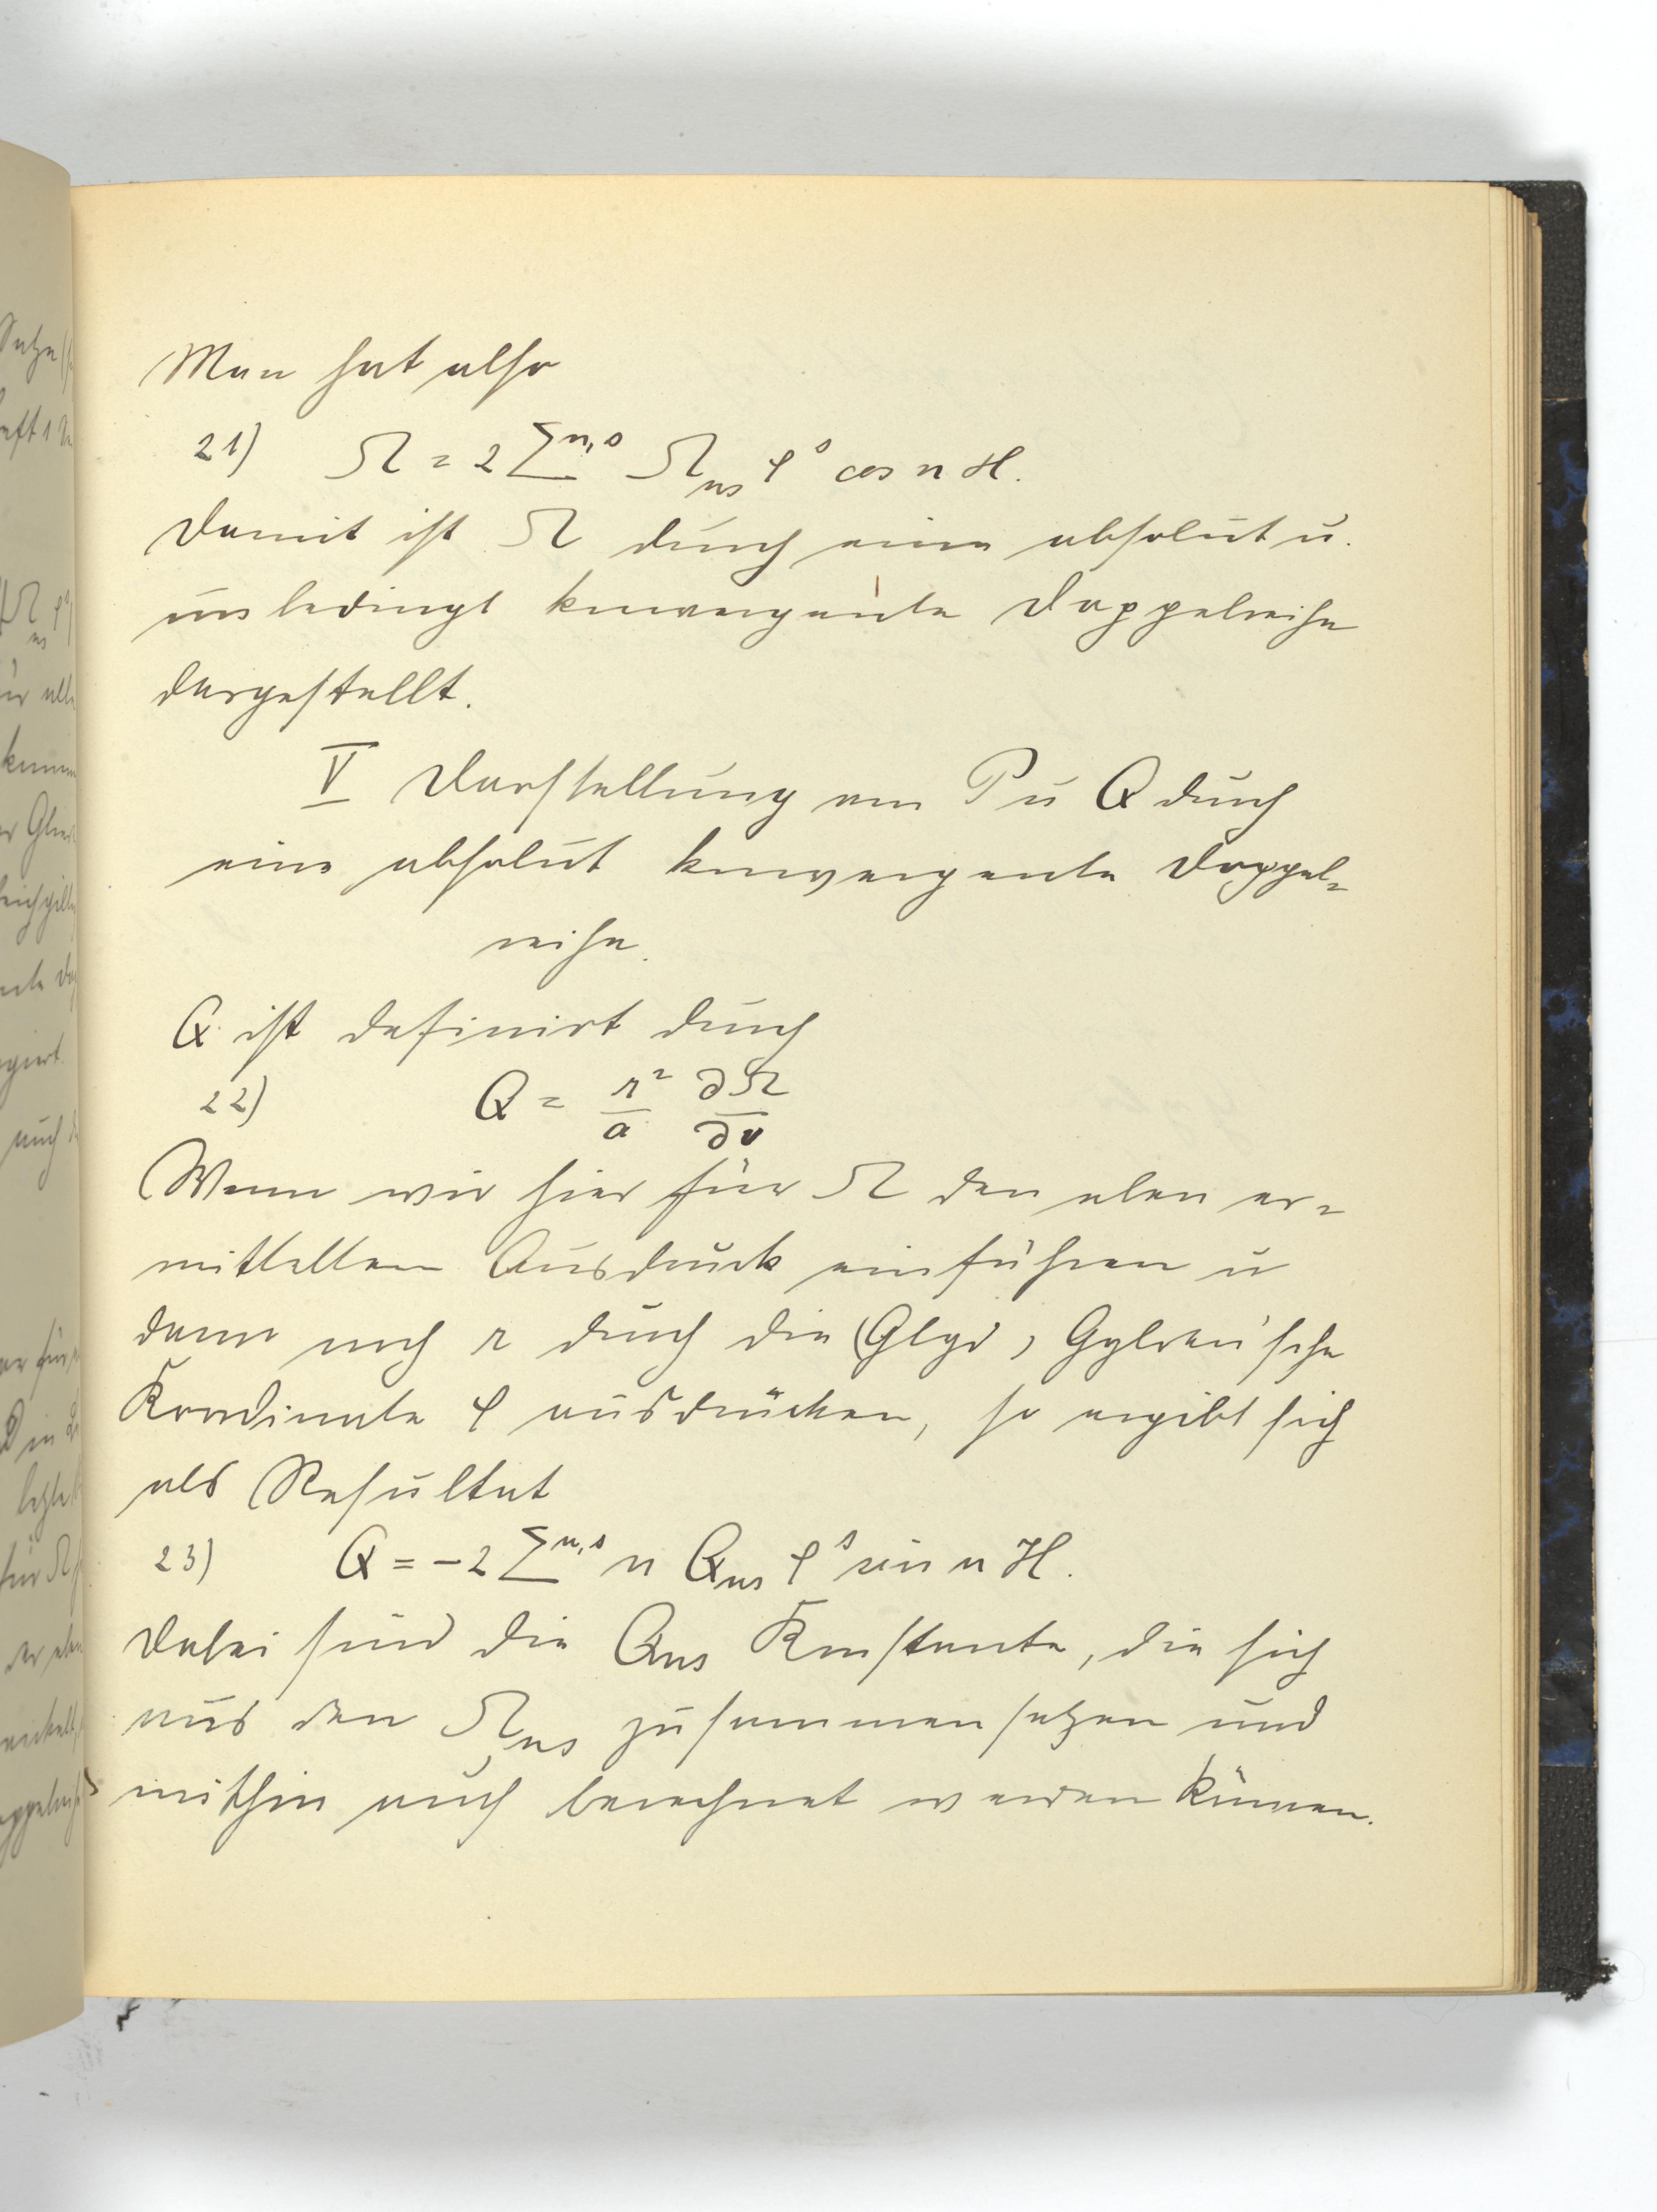 Man hat also
21) Ω = 2 Σ^{n,s} Ω_{ns} ρ^s cos n H.
Damit ist Ω durch eine absolut u.
unbedingt konvergente Doppelreihe
dargestellt.
V Darstellung von P u Q durch
eine absolut konvergente Doppel-
reihe.
Q ist definirt durch
22) Q = r²/a ∂Ω/∂v
Wenn wir hier für Ω den eben er-
mittelten Ausdruck einführen u
dann noch r durch die Gyldén'sche
Koordinate ρ ausdrücken, so ergibt sich
als Resultat
23) Q = -2 Σ^{n,s} n Q_{ns} ρ^s sin n H.
Dabei sind die Q_{ns} Konstante, die sich
aus den Ω_{ns} zusammensetzen und
mithin auch berechnet werden können.